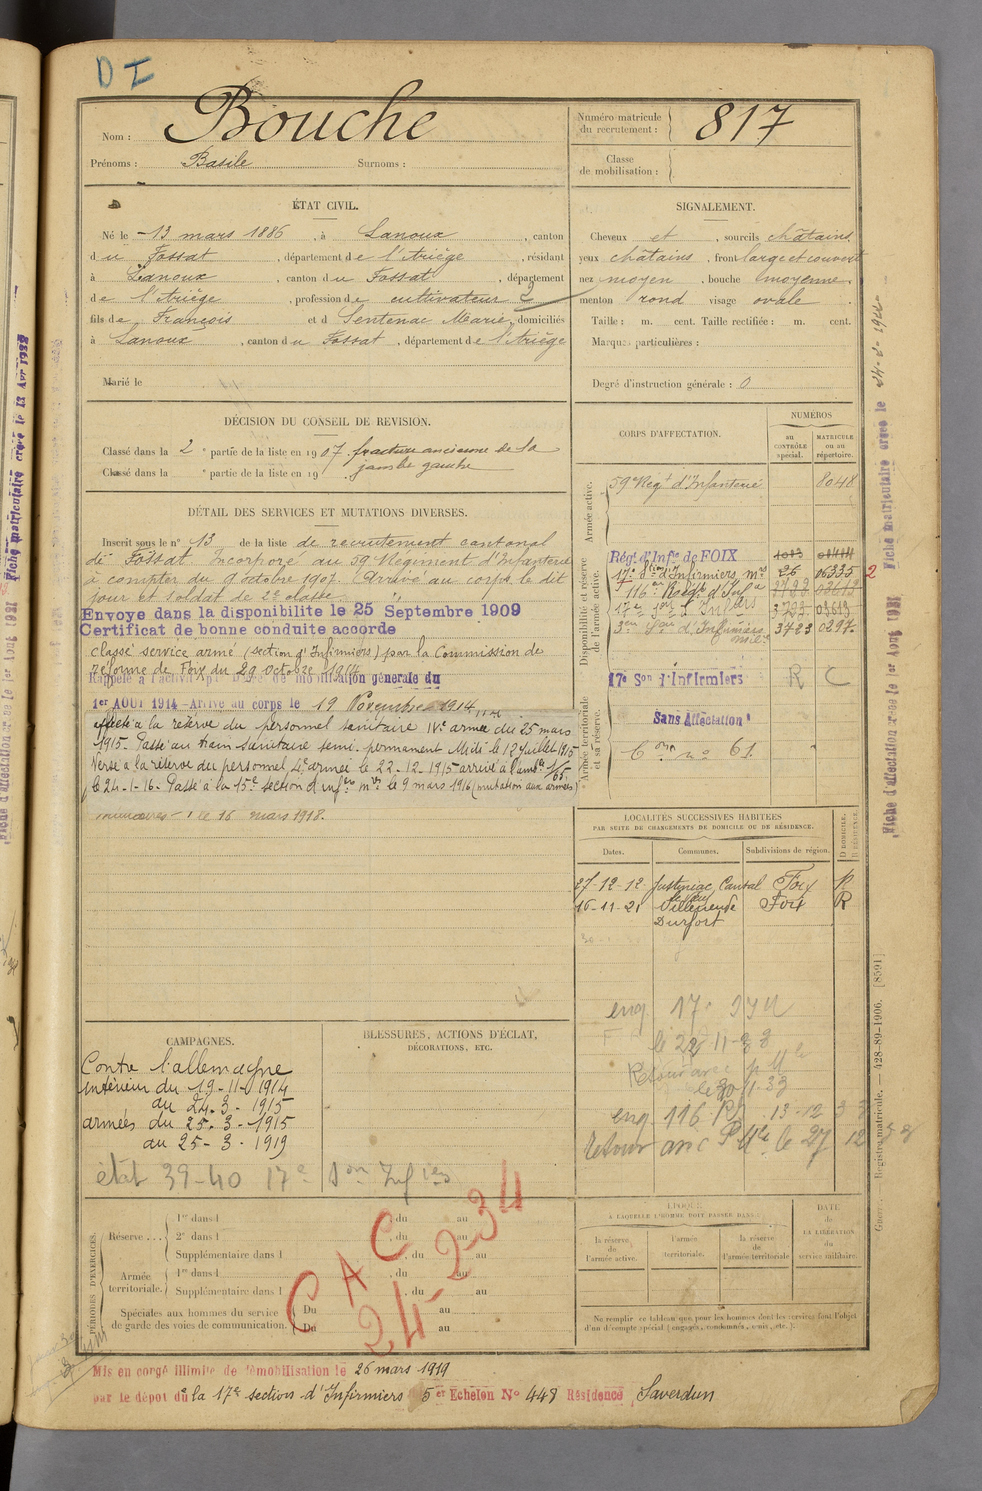 D I
Nom : Bouche
Prénoms : Basile Surnoms :
Numéro matricule du recrutement : 817
Classe de mobilisation :
ÉTAT CIVIL.
Né le 13 mars 1886, à Lanoux, canton
du Fossat, département de l'Ariège, résidant
à Lanoux, canton du Fossat, département
de l'Ariège, profession de cultivateur
fils de François et d Sentenac Marie, domiciliés
à Lanoux, canton du Fossat, département de l'Ariège
Marié le
SIGNALEMENT.
Cheveux et, sourcils châtains
yeux châtains, front large et couvert
nez moyen, bouche moyenne
menton rond visage ovale
Taille : m. cent. Taille rectifiée : m. cent.
Marques particulières :
Degré d'instruction générale : 0
DÉCISION DU CONSEIL DE REVISION.
Classé dans la 2e partie de la liste en 1907. fracture ancienne de la
Classé dans la e partie de la liste en 19 jambe gauche
DÉTAIL DES SERVICES ET MUTATIONS DIVERSES.
Inscrit sous le n° 13 de la liste de recrutement cantonal
de Fossat Incorporé au 59e Régiment d'Infanterie
à compter du 9 octobre 1907. Arrivé au corps le dit
jour et soldat de 2e classe
Envoyé dans la disponibilité le 25 Septembre 1909
Certificat de bonne conduite accordé
classé service armé (section d'Infirmiers) par la Commission de
réforme de Foix du 29 octobre 1914
Rappelé à l'activité mobilisation générale du
1er AOUT 1914 - Arrivé au corps le 19 Novembre 1914
affecté à la réserve du personnel sanitaire IVe armée du 25 mars
1915. Passé au train sanitaire semi-permanent Midi le 12 juillet 1915
Versé à la réserve du personnel 4e armée le 22-12-1915 arrivé à l'amb. 1/65
le 24-1-16. Passé à la 15e section d'infres mres le 9 mars 1916 (mutation aux armées)
le 16 mars 1918.
CORPS D'AFFECTATION.
NUMÉROS
au CONTRÔLE spécial.
MATRICULE ou au répertoire.
Armée active.
59e Régt d'Infanterie 8048
Disponibilité et réserve de l'armée active.
Régt d'Infie de FOIX
17e d'Infirmiers mres 26 06335 2
116e Régt d'Infie
3e Son d'Infirmiers 3723 0297
17e Son d'Infirmiers R C
Armée territoriale et sa réserve.
Sans Affectation
n° 61
LOCALITÉS SUCCESSIVES HABITÉES
PAR SUITE DE CHANGEMENTS DE DOMICILE OU DE RÉSIDENCE.
Dates. Communes. Subdivisions de région. D DOMICILE. R RÉSIDENCE.
27-12-12 Justiniac, Cantal Foix R
16-11-21 Villeneuve Foix R
Durfort
CAMPAGNES.
Contre l'allemagne
intérieur du 19-11-1914
au 24-3-1915
armées du 25-3-1915
au 25-3-1919
état 39-40 17e Son Infiers
BLESSURES, ACTIONS D'ÉCLAT,
DÉCORATIONS, ETC.
eng. 17e
le 22-11-33
eng. 116 13-12 33
Retour avec le 27 12
PÉRIODES D'EXERCICES.
Réserve ... 1re dans l , du au
2e dans l , du au
Supplémentaire dans l , du au
Armée territoriale. 1re dans l , du au
Supplémentaire dans l , du au
Spéciales aux hommes du service Du au
de garde des voies de communication. Du au
C A C
24-2-34
ÉPOQUE
À LAQUELLE L'HOMME DOIT PASSER DANS :
la réserve de l'armée active. l'armée territoriale. la réserve de l'armée territoriale
DATE de LA LIBÉRATION du service militaire.
Ne remplir ce tableau que pour les hommes dont les services font l'objet
d'un décompte spécial (engagés, condamnés, omis, etc.).
Mis en congé illimité de démobilisation le 26 mars 1919
par le dépôt du la 17e section d'Infirmiers 5er Echelon N° 448 Résidence Saverdun
Registre matricule. — 428-89-1906. [8591]
Fiche matriculaire créée le
Fiche d'affectation créée le 1er Aout 1931
Fiche matriculaire créée le 13 Avr 1932